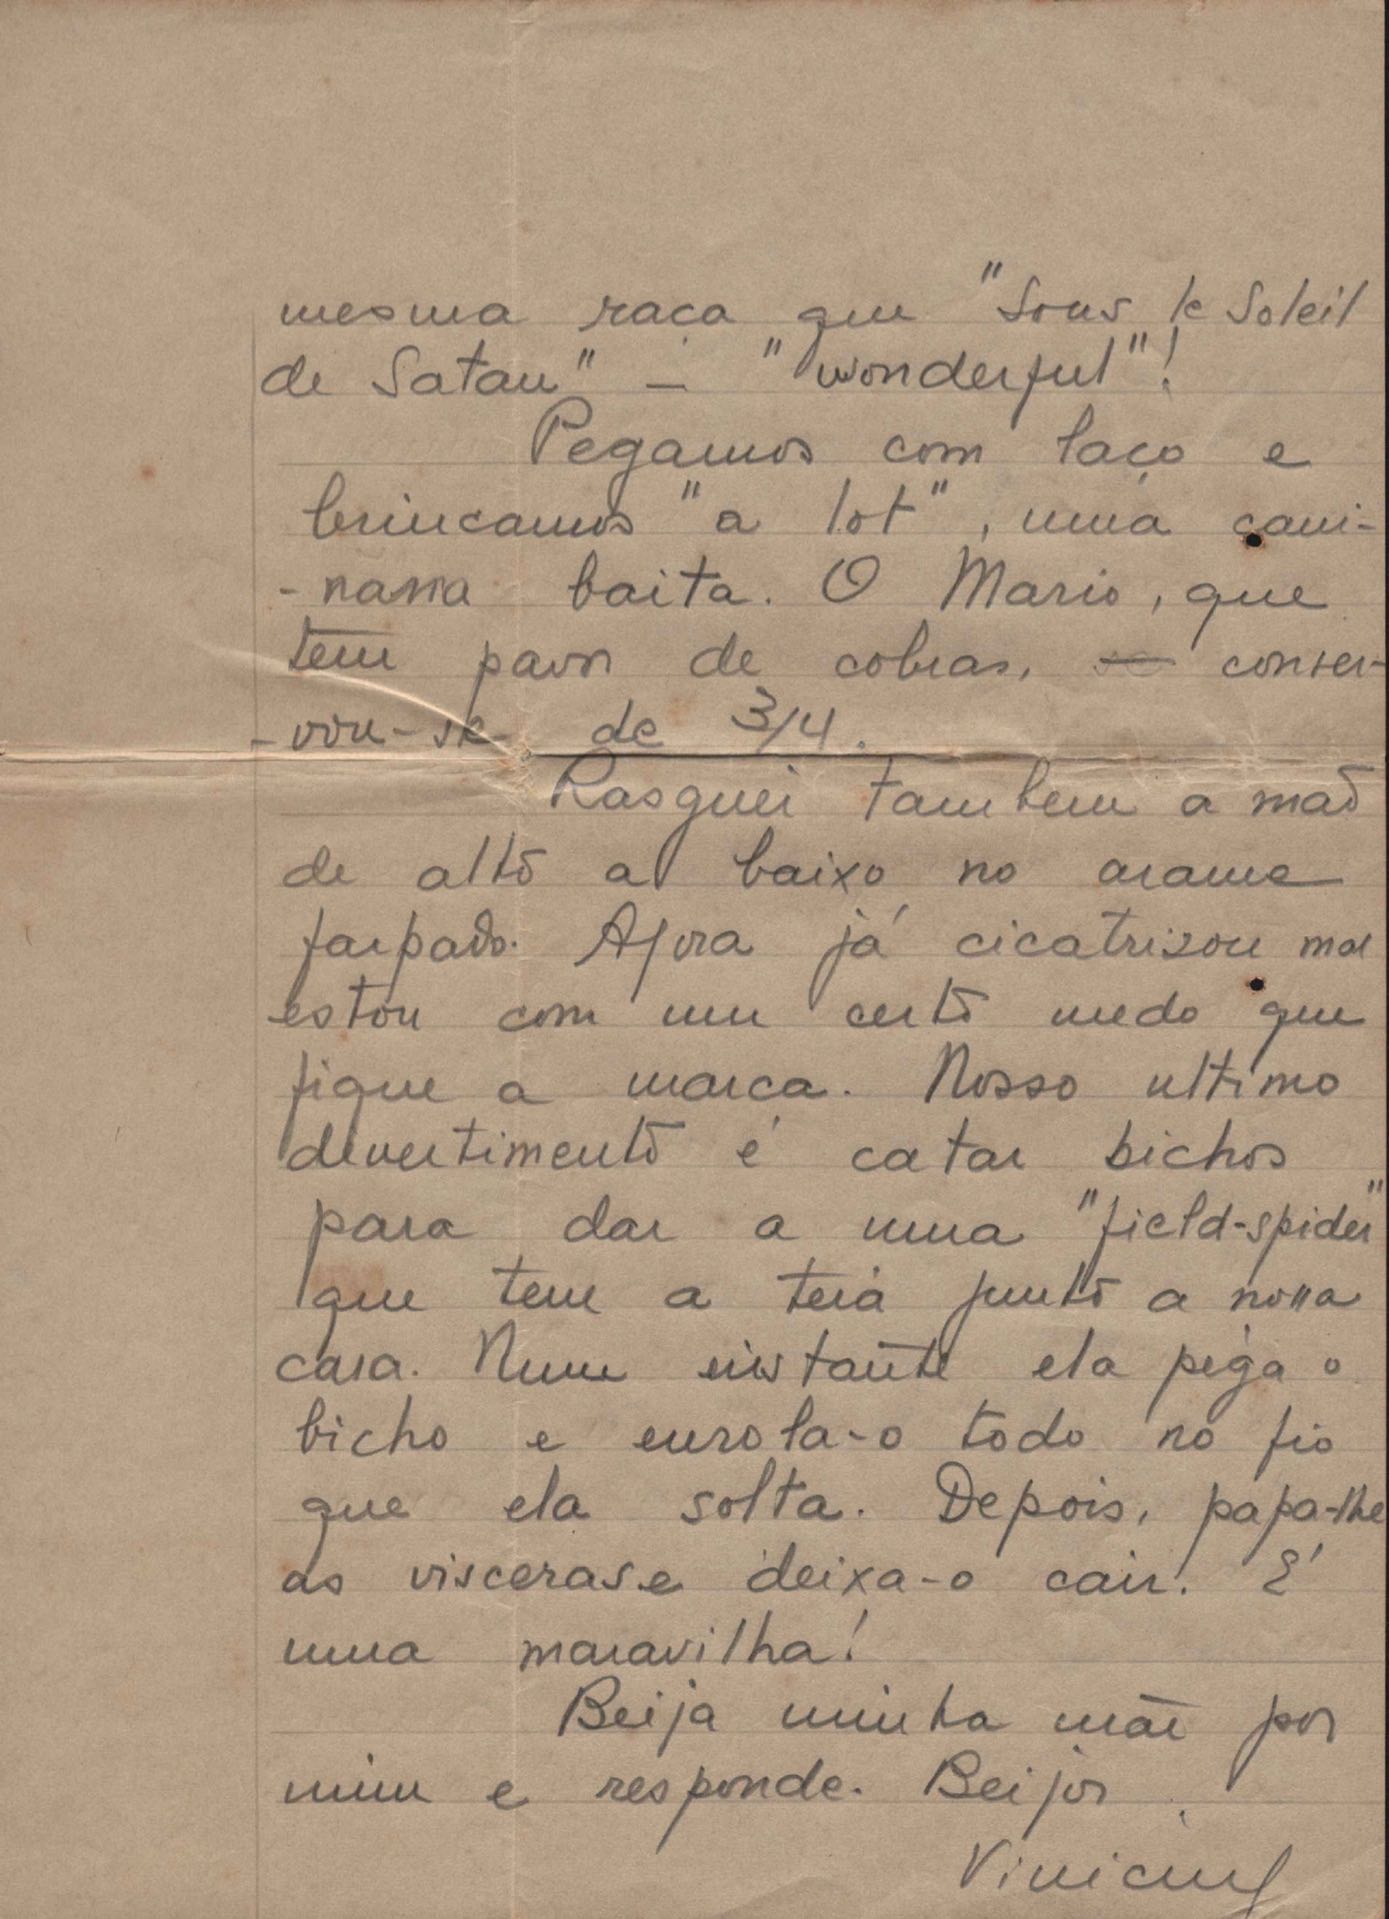 mesma raça que "Sous le Soleil
de Satan" — "wonderful"!
Pegamos com laço e
brincamos "a lot", uma cani-
-nana baita. O Mario, que
tem pavor de cobras, conser-
-vou-se de 3/4.
Rasguei tambem a mão
de alto a baixo no arame
farpado. Agora já cicatrisou mas
estou com um certo medo que
fique a marca. Nosso ultimo
divertimento é catar bichos
para dar a uma "field-spider"
que tem a teia junto a nossa
casa. Num instante ela pega o
bicho e enrola-o todo no fio
que ela solta. Depois, papa-lhe
as visceras e deixa-o cair. É
uma maravilha!
Beija minha mãe por
mim e responde. Beijos
Vinicius